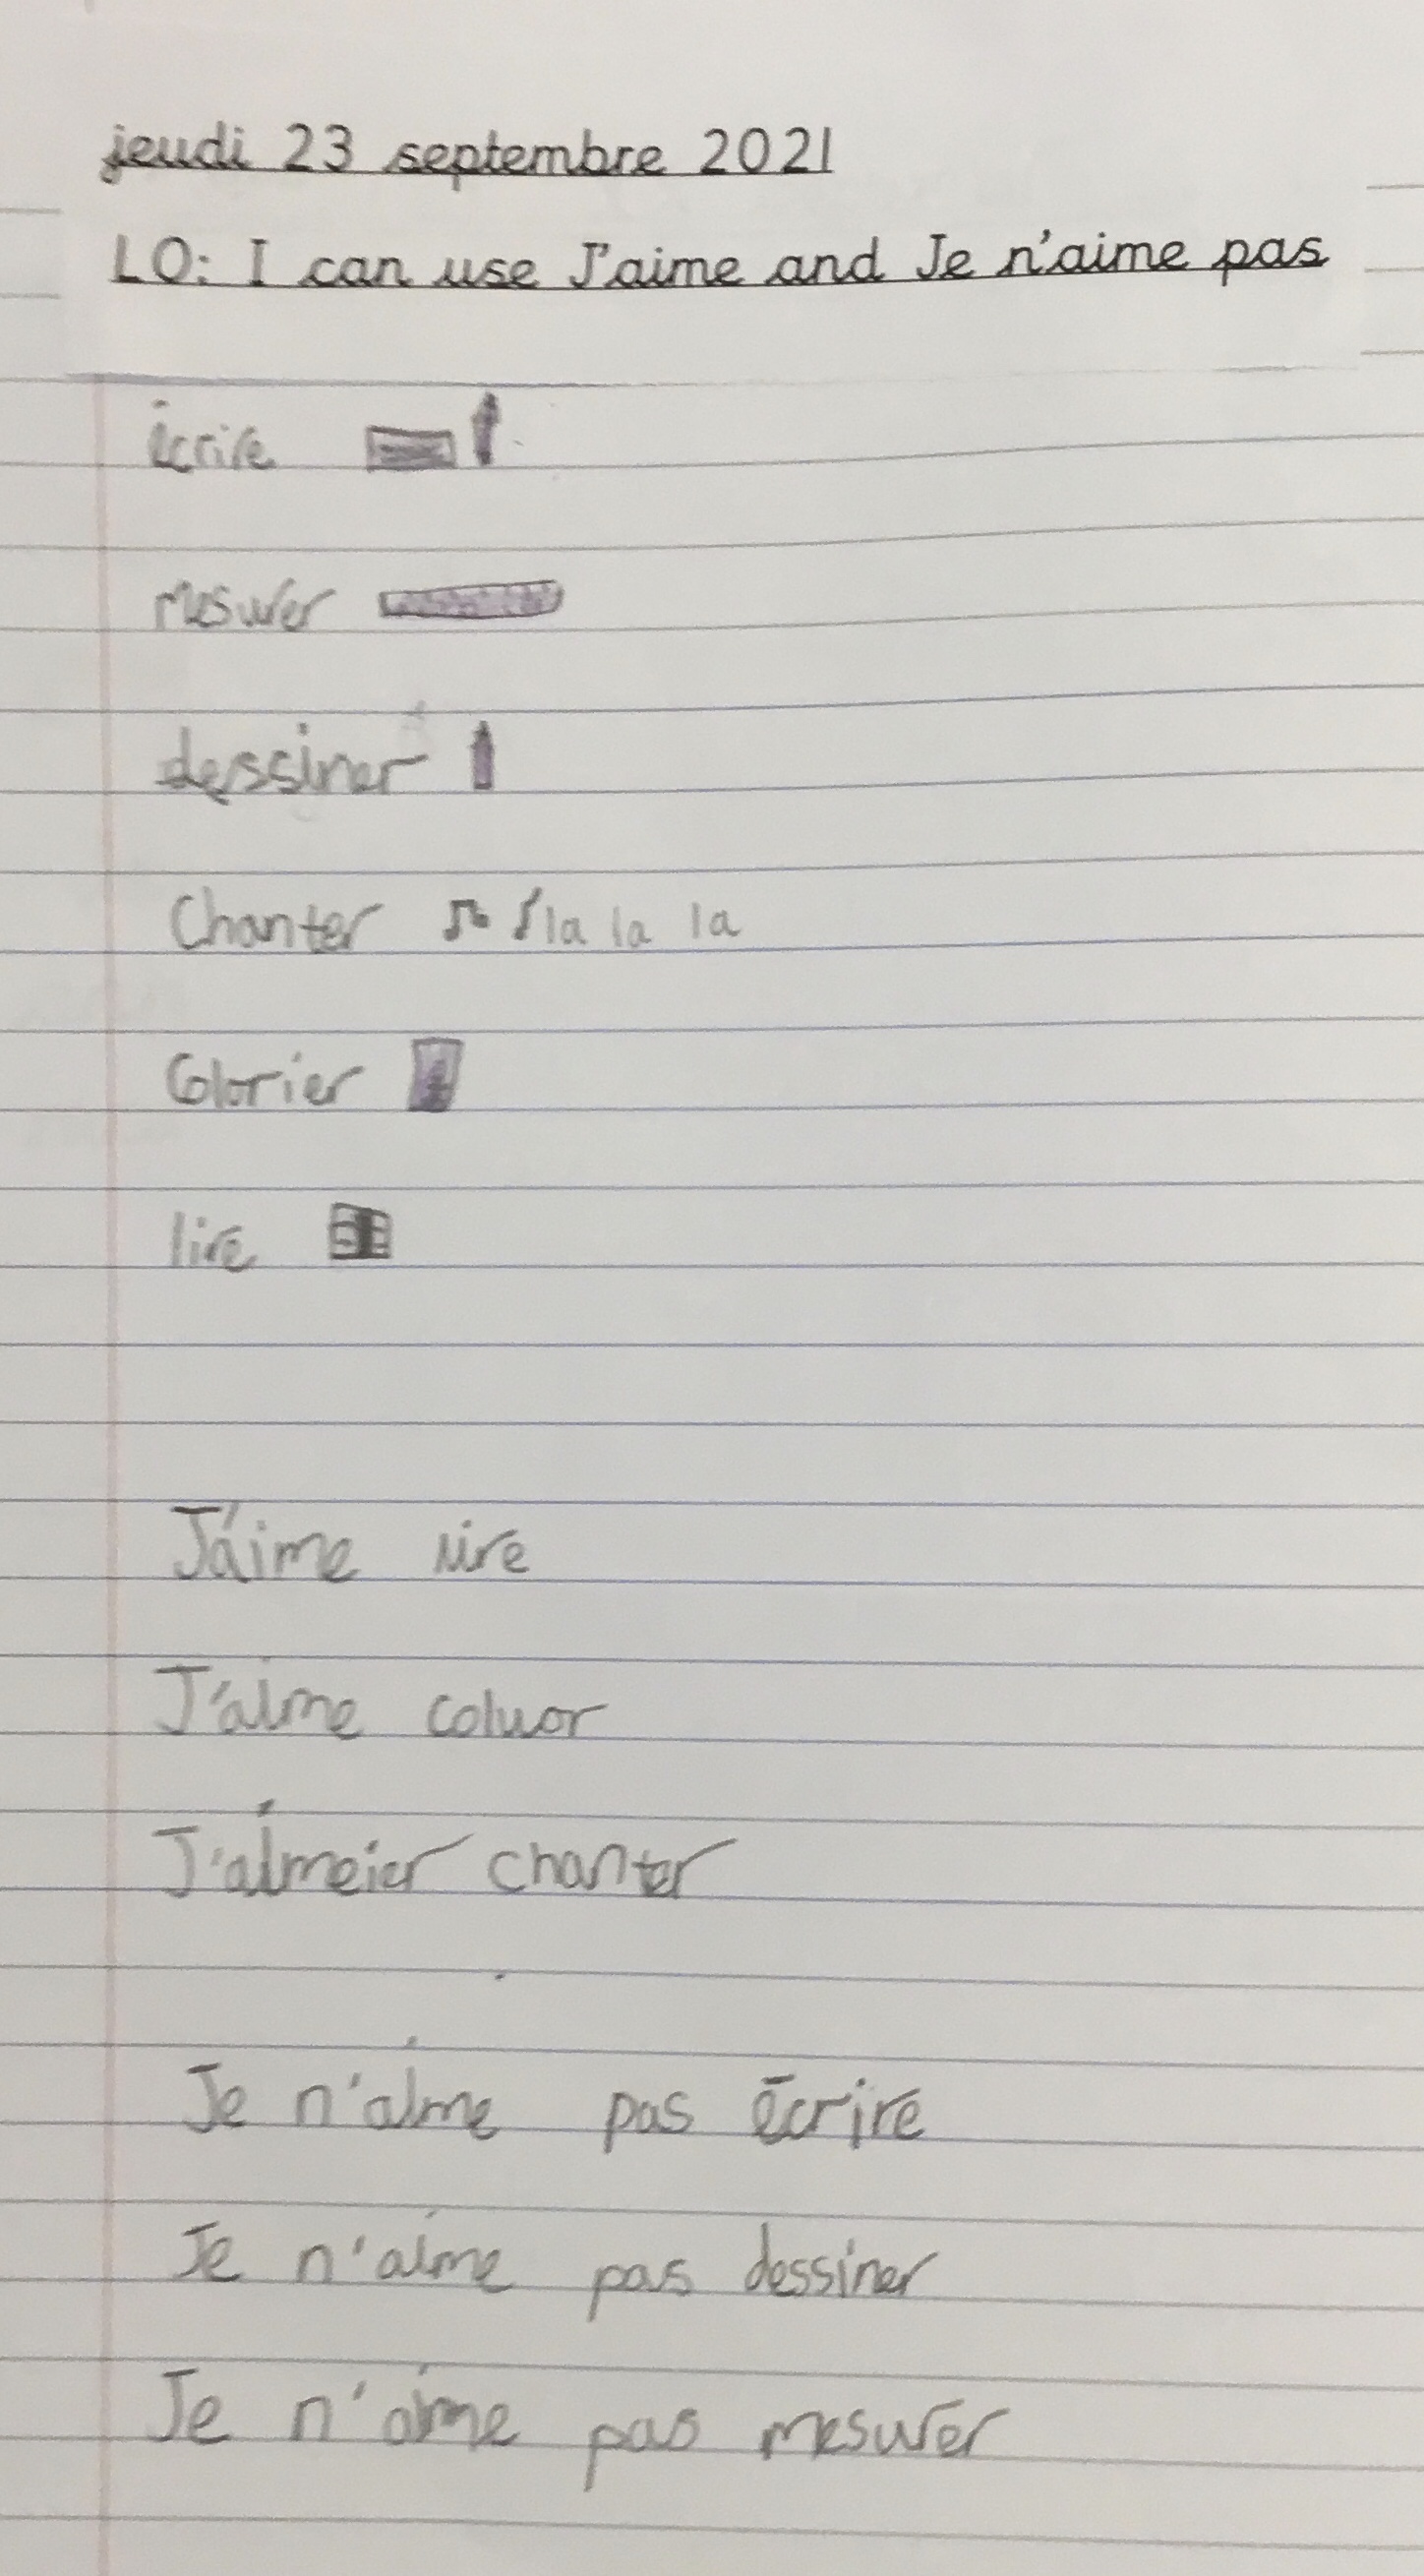 jeudi 23 septembre 2021
LO: I can use J'aime and Je n'aime pas
écrire
mesurer
dessiner
Chanter la la la
Colorier
lire
J'aime lire
J'aime coluor
J'aimeier chanter
Je n'aime pas écrire
Je n'aime pas dessiner
Je n'aime pas mesurer